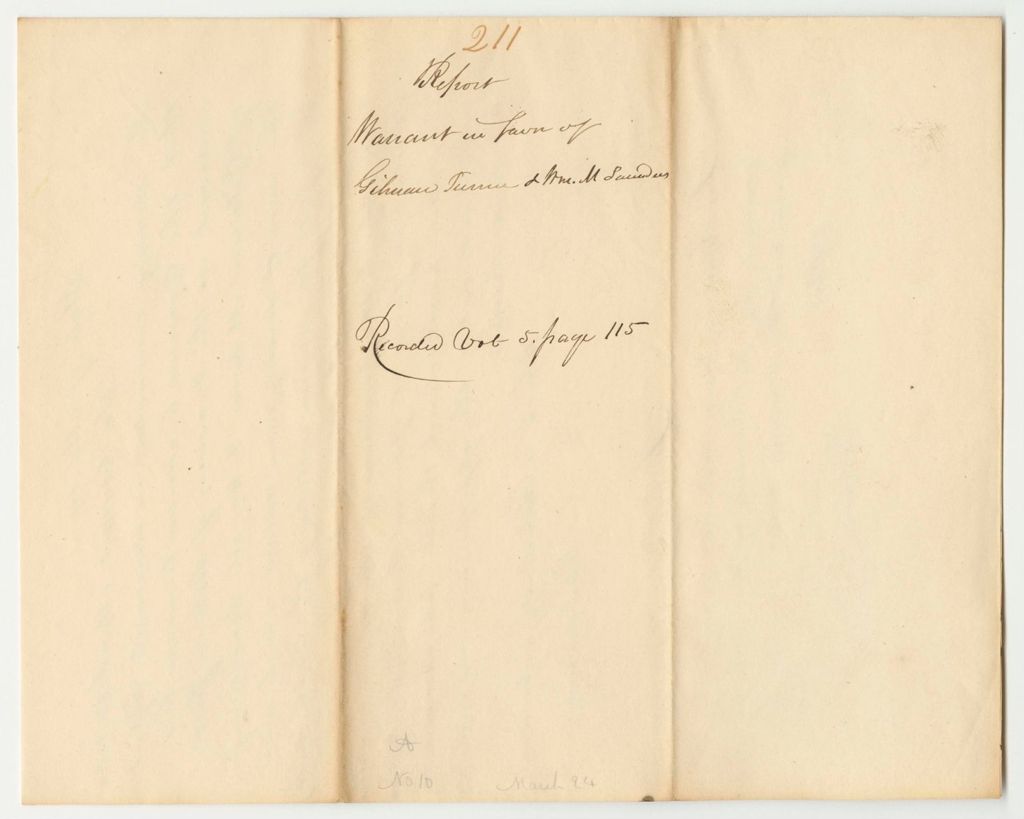 211
Report
Warrant in favor of
Gilman Turner & Wm. M Saunders
Recorded Vol 5. page 115
A
No 10 March 24